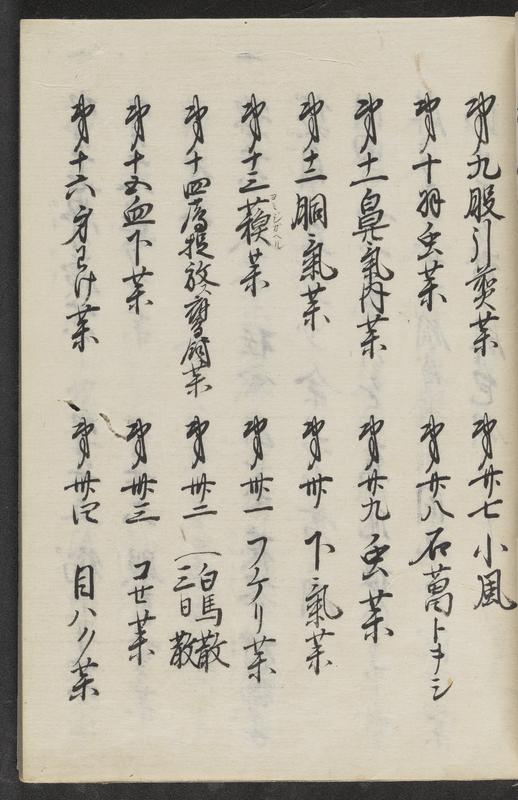 第九股引煎薬
第十羽虫薬
第十一鼻氣内薬
第十二胴氣薬
第十三蘰薬
第十四鷹提放
第十五血下薬
第十六身ヨせけ薬
第廿七小風
第廿八石萬トヲシ
第廿九虫薬
第卅下氣薬
第卅一フケリ薬
第卅二白馬散
三日散
第卅三コセ薬
第卅四目ハク薬